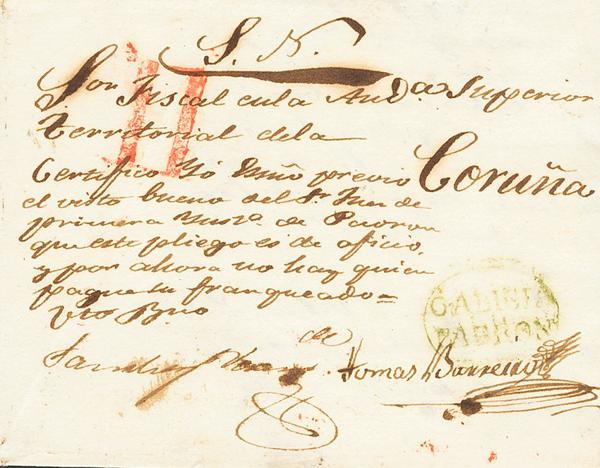 S. N.
Sor Fiscal en la Audª Superior
territorial de la
Coruña
Certifico Yó Esnō previo
el visto bueno del Sr Juez de
primera Ynstª de Padron
que este pliego es de oficio,
y por ahora no hay quien
pague su franqueado=
Vto Bno
Tomas Barreiro
GALICIA
PADRON